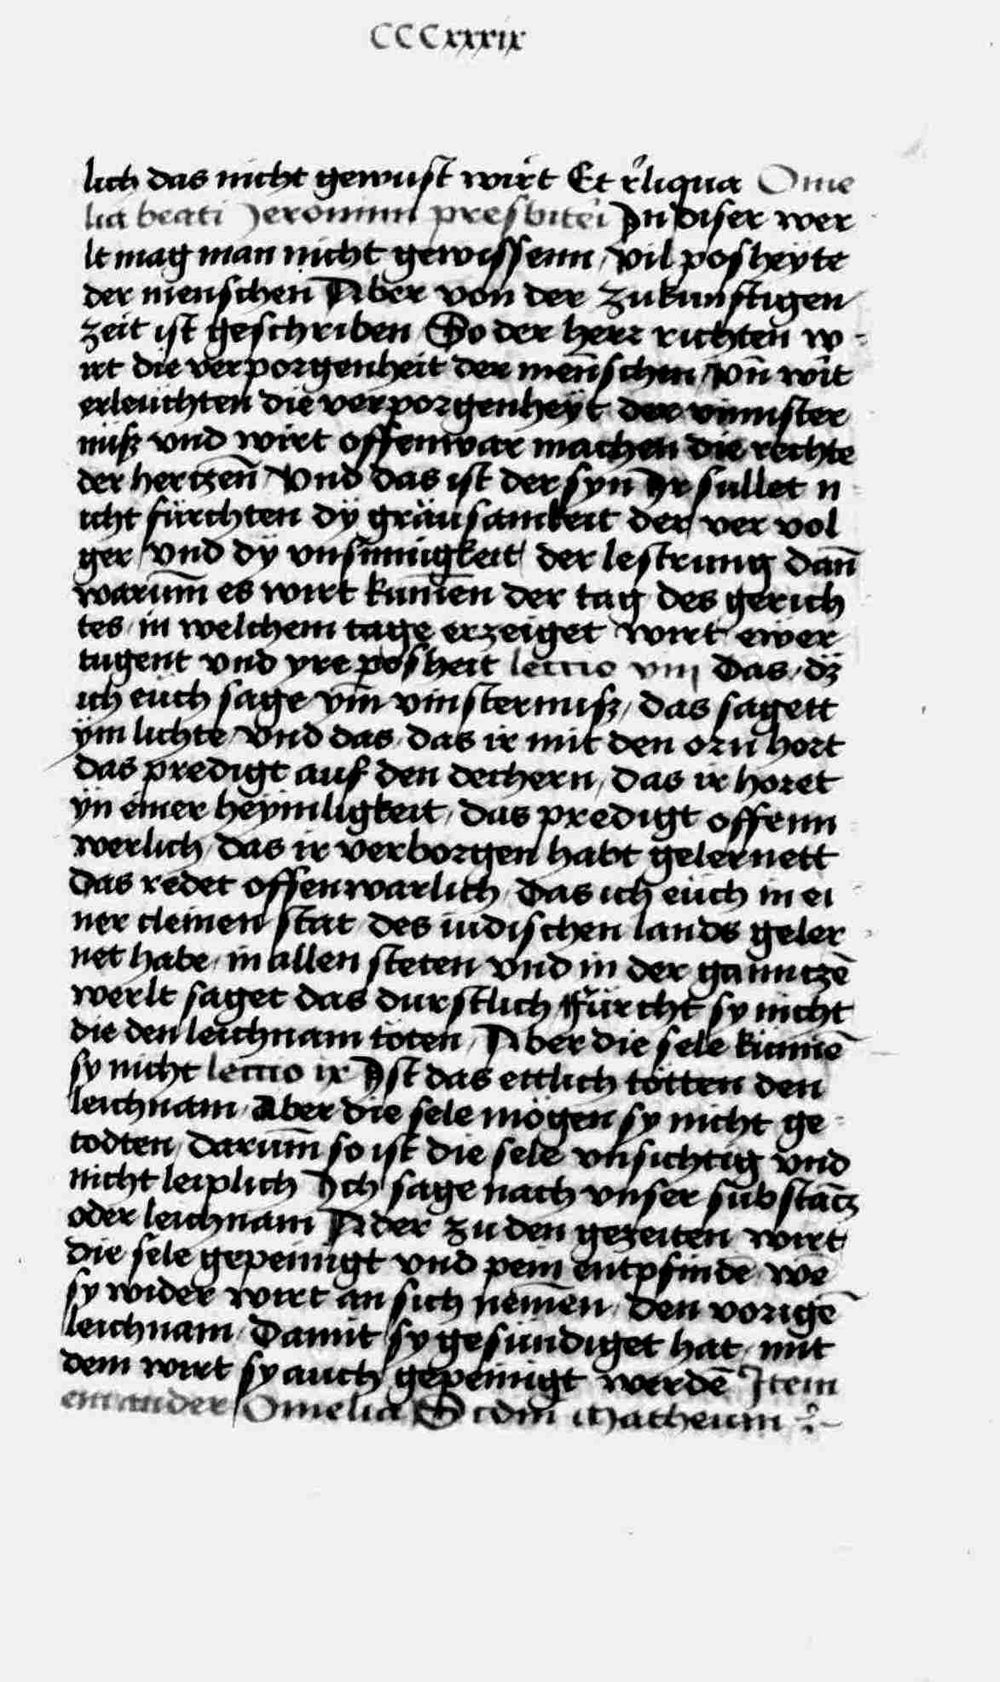 CCCxxxix
lich das nicht gewust wirt Et rliqua Ome
lia beati Jeronimi presbiteri In diser wer
lt mag man nicht gewissenn / vil posheyte
der menschen Aber von der zukunftigen
zeit ist geschriben So der herr richten w
irt die verporgenheit der menschen / vn̄ wirt
erleuchten die verporgenheyt der vinnster
niß vnd wirt offenwar machen die rechte
der hertzen̄ / Vnd das ist der syn Ir sullet n
icht fürchten dÿ gräusamkeit der ver vol
ger / vnd dy vnsinnigkeit der lestrung dan̄
warum̄ es wirt kumen̄ der tag des gerich
tes / in welchem tage erzeiget wirt ewer
tugent vnd yre posheit lectio viij Das / dz
ich euch sage ym vinsterniß / das sagett
ÿm lichte / Vnd das / das ir mit den orn hort
das predigt auf den dechern / das ir horet
ÿn einer heymligkeit / das predigt offenn
werlich / das ir verborgen habt gelernett
das redet offenwarlich / Das ich euch in ei
ner cleinen stat des iudischen lands geler
net habe / in allen steten vnd in der ganntzē
werlt saget das durstlich Fürcht sy nicht
die den leichnam töten / Aber die sele kunnē
sy nicht lectio ix Ist das ettlich tötten den
leichnam / aber die sele mögen sy nicht ge
todten / darum̄ so ist die sele vnsichtig vnd
nicht leiplich Ich sage nach vnser substācz
oder leichnam Ader zu den gezeiten wirt
die sele gepeinigt vnd pein entpfindē / we
sy wider wirt an sich nemen̄ / den vorigē
leichnam / Damit sy gesundiget hat / mit
dem wirt sy auch gepeinigt werdē Item
ein ander Omelia Scdm Matheum